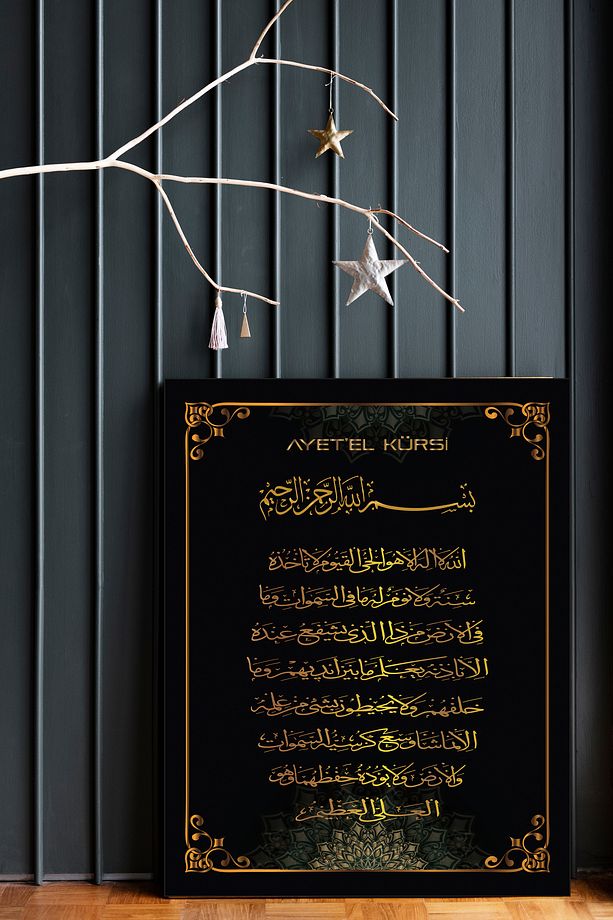 AYET'EL KÜRSİ
بسم الله الرحمن الرحيم
الله لا اله الا هو الحي القيوم لا تأخذه
سنة ولا نوم له ما في السموات وما
في الارض من ذا الذي يشفع عنده
الا باذنه يعلم ما بين ايديهم وما
خلفهم ولا يحيطون بشئ من علمه
الا بما شاء وسع كرسيه السموات
والارض ولا يؤده حفظهما وهو
العلي العظيم